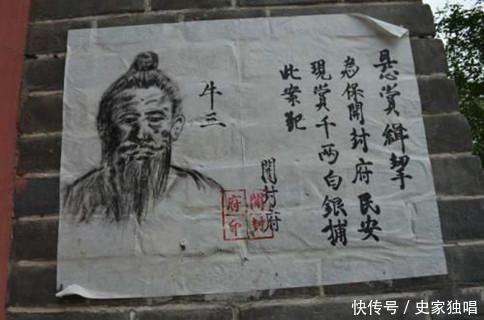 懸賞緝拏
為保開封府民安
現賞千两白銀捕
此案犯
牛三
開封府
開封
府印
快传号／史家独唱